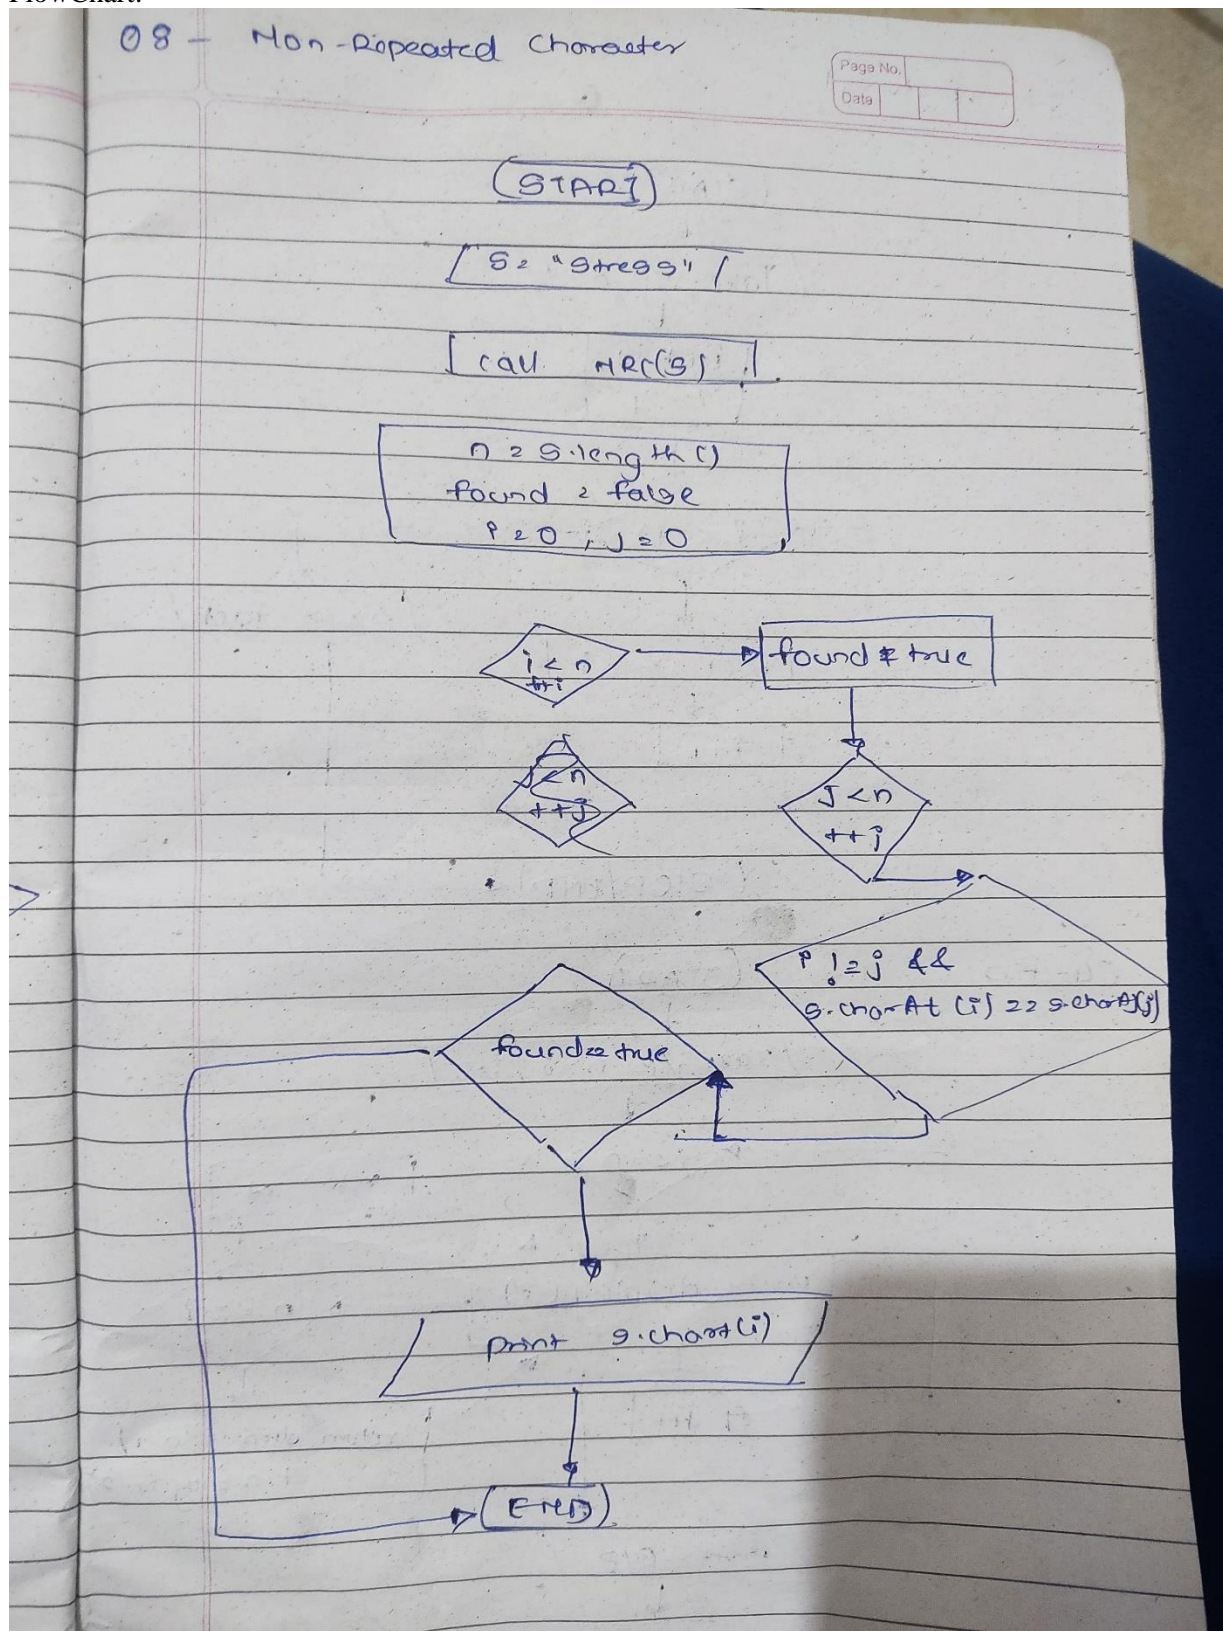 FlowChart:
08 - Non-Repeated Character
Page No.
Date
START
S = "Stress"
call NRC(S)
n = S.length()
found = false
i = 0 ; j = 0
i < n
++i
found = true
j < n
++j
j < n
++j
i != j &&
s.charAt (i) == s.charAt(j)
found == true
print s.chart(i)
END